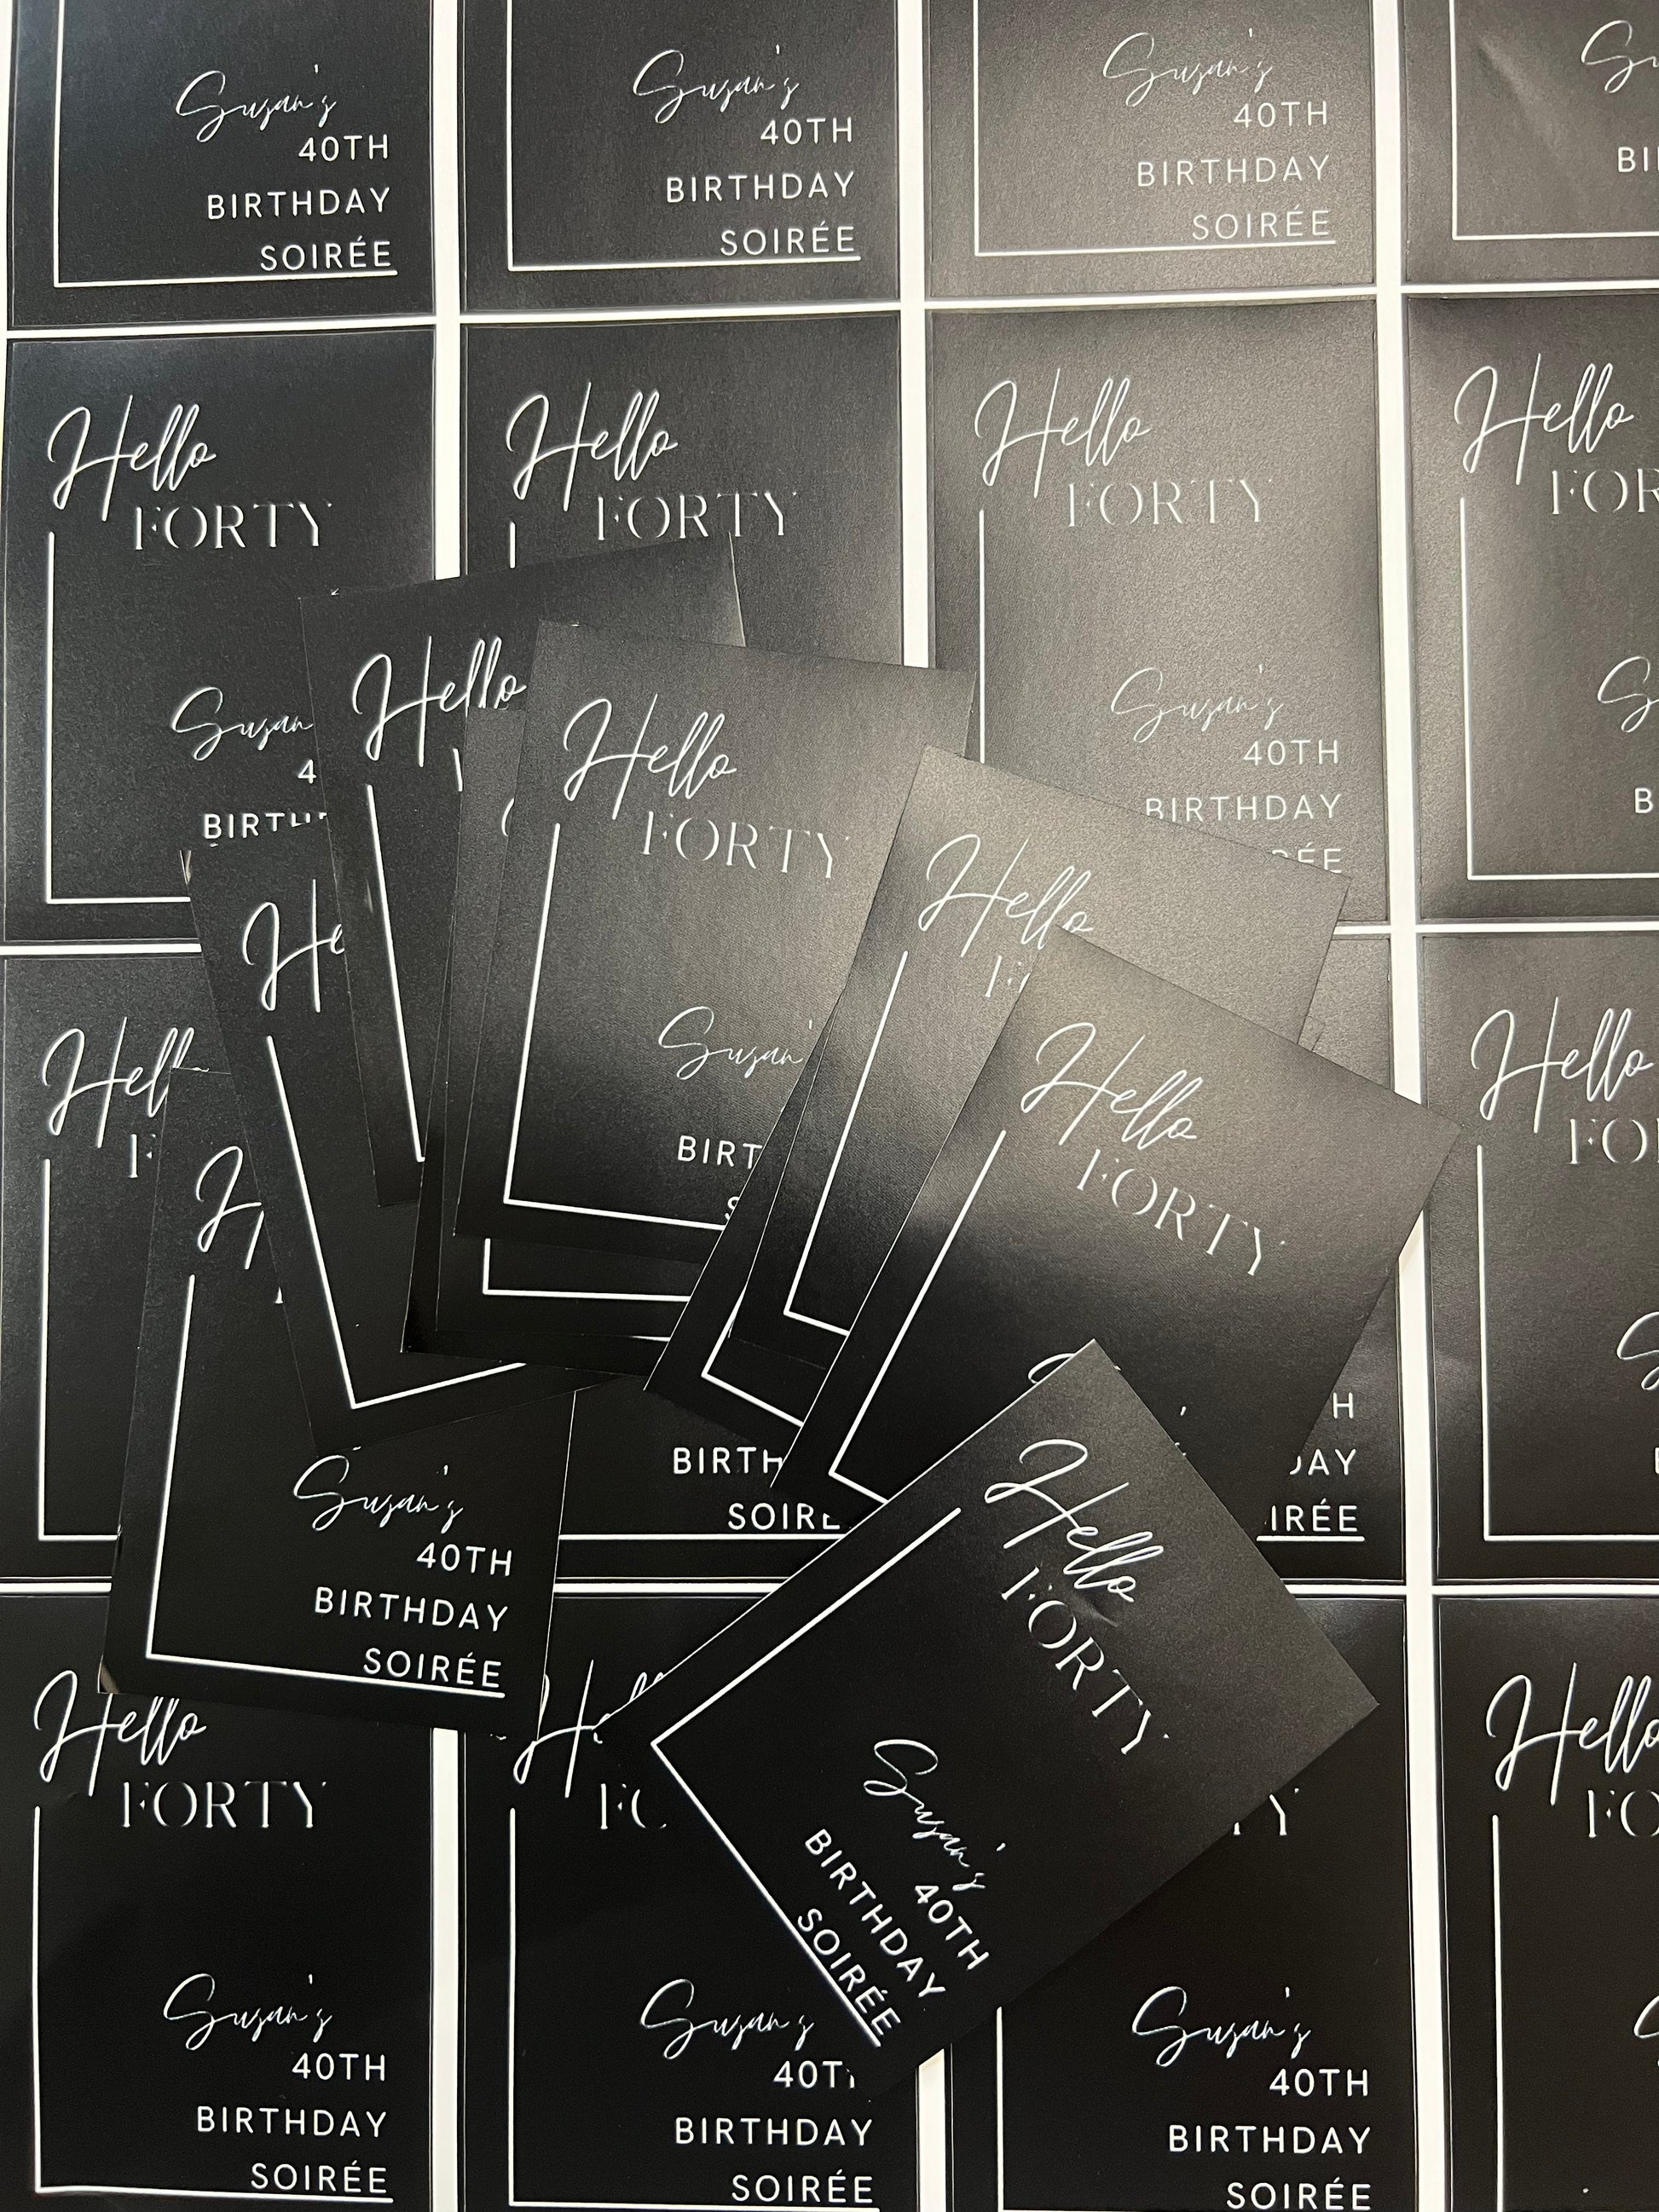 Susan's
40TH
BIRTHDAY
SOIRÉE
Susan's
40TH
BIRTHDAY
SOIRÉE
Susan's
40TH
BIRTHDAY
SOIRÉE
Hello
FORTY
Susan
Hello
FORTY
Hello
FORTY
Susan's
40TH
BIRTHDAY
Hello
FOR
Hello
Hello
FORTY
Susan'
BIRT
Hello
He
Hello
FORTY
Hell
Hello
FO
BIRTH
SOIR
H
AY
IRÉE
Susan's
40TH
BIRTHDAY
SOIRÉE
Hello
FORTY
Susan's
40TH
BIRTHDAY
SOIRÉE
Hello
FORTY
Susan's
40TH
BIRTHDAY
SOIRÉE
Susan's
40T
BIRTHDAY
SOIRÉE
Susan's
40TH
BIRTHDAY
SOIRÉE
Hello
FO